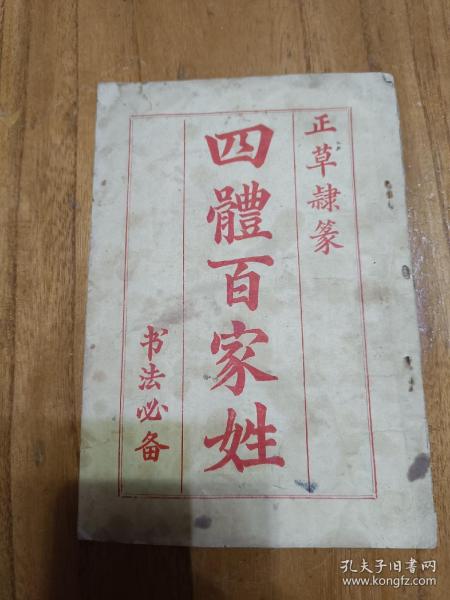 正草隸篆
四體百家姓
书法必备
孔夫子旧书网
www.kongfz.com